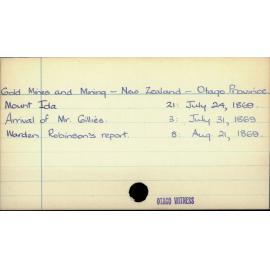 Gold Mines and Mining - New Zealand - Otago Province
Mount Ida 21: July 24, 1869.
Arrival of Mr. Gillies. 3: July 31, 1869
Warden Robinson's report. 8: Aug. 21, 1869.
OTAGO WITNESS